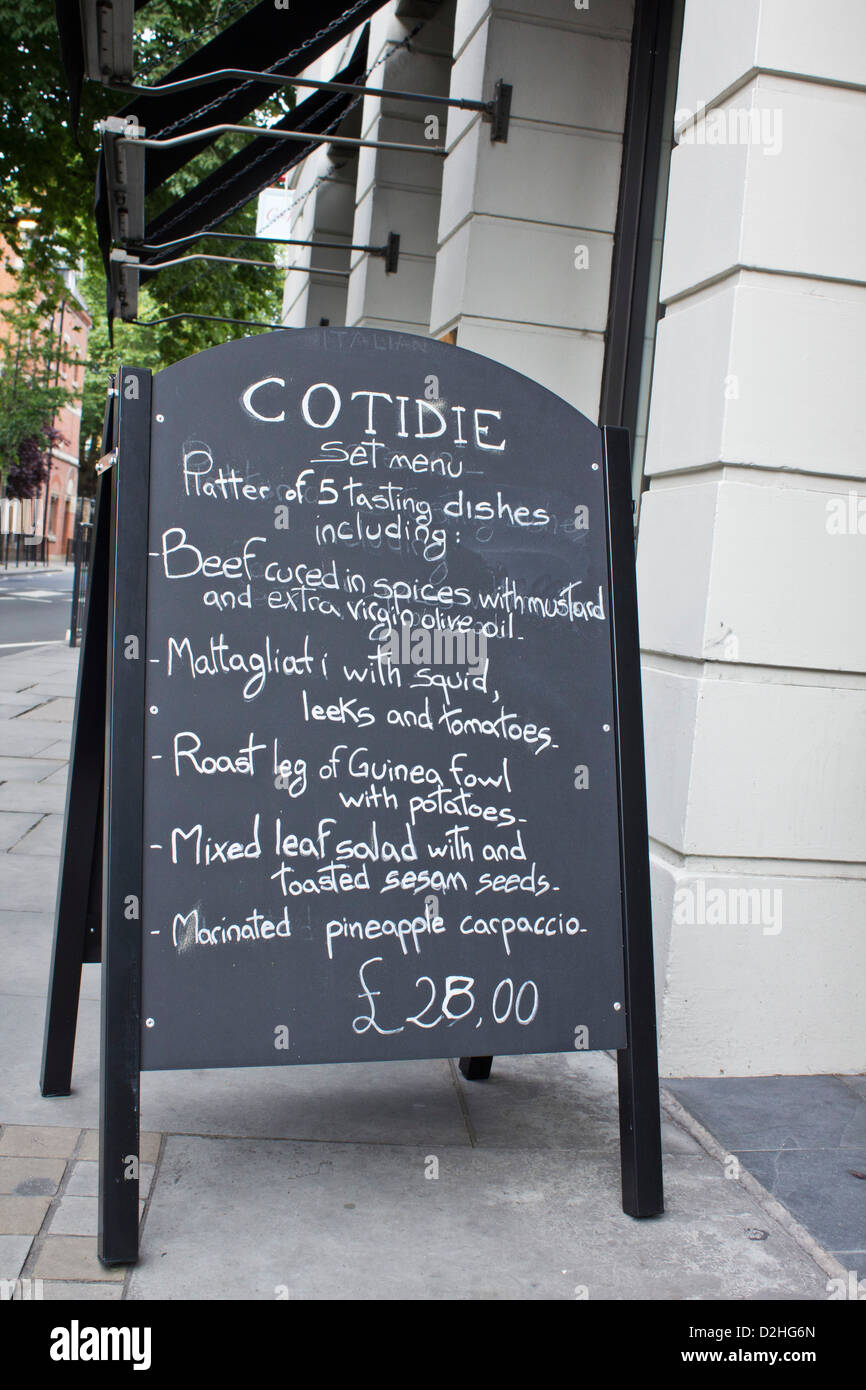 ITALIAN
COTIDIE
Set menu
Platter of 5 tasting dishes
including:
- Beef cured in spices with mustard
and extra virgin olive oil.
- Maltagliati with squid,
leeks and tomatoes.
- Roast leg of Guinea fowl
with potatoes.
- Mixed leaf salad with and
toasted sesam seeds.
- Marinated pineapple carpaccio.
£28,00
alamy
Image ID: D2HG6N
www.alamy.com